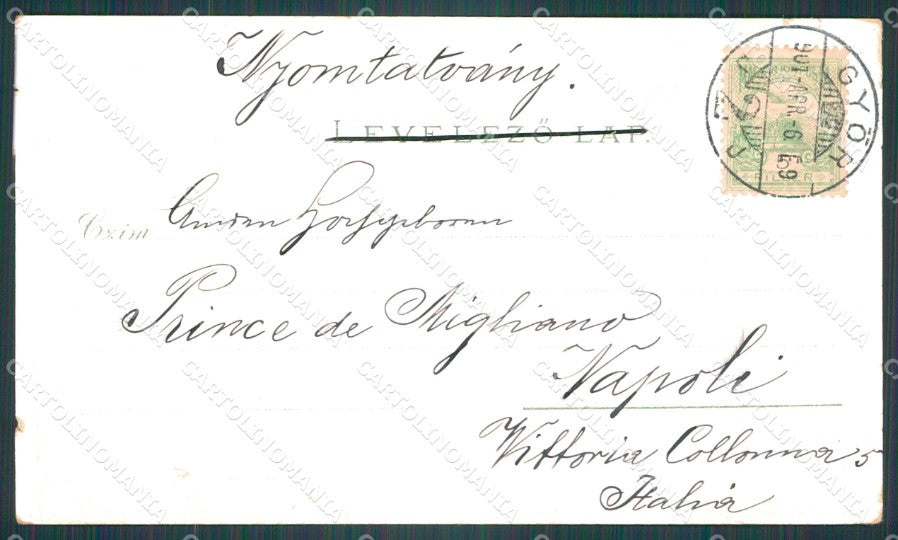 Nyomtatvány.
LEVELEZŐ-LAP.
GYŐR
901 APR. -6
FILLÉR
Czim
Hochgeboren
Prince de Migliano
Napoli
Vittoria Collonna 5
Italia
CARTOLINOMANIA